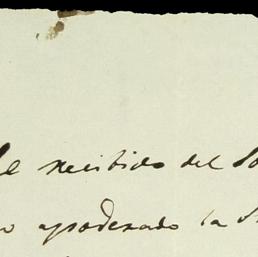 He recibido del So
o apoderado la S